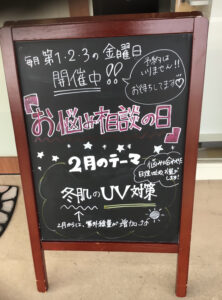 毎月 第1・2・3の金曜日
開催中!!
予約は
いりません!!
お待ちしてます♡
お悩み相談の日
2月のテーマ
冬肌のUV対策
2月からは、紫外線量が増加